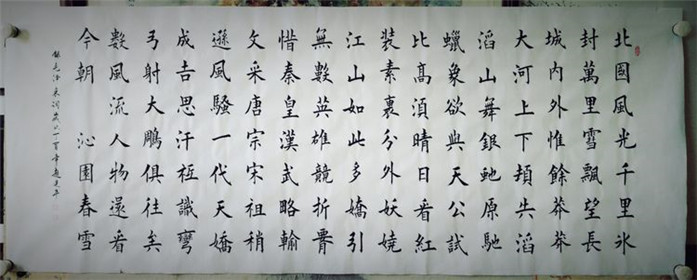 北國風光千里氷
封萬里雪飄望長
城內外惟餘莽莽
大河上下頓失滔
滔山舞銀虵原馳
蠟象欲與天公試
比高須晴日看紅
裝素裹分外妖嬈
江山如此多嬌引
無數英雄競折腰
惜秦皇漢武略輸
文采唐宗宋祖稍
遜風騷一代天嬌
成吉思汗祗識彎
弓射大鵬俱往矣
數風流人物還看
今朝 沁園春雪
錄毛澤東詞